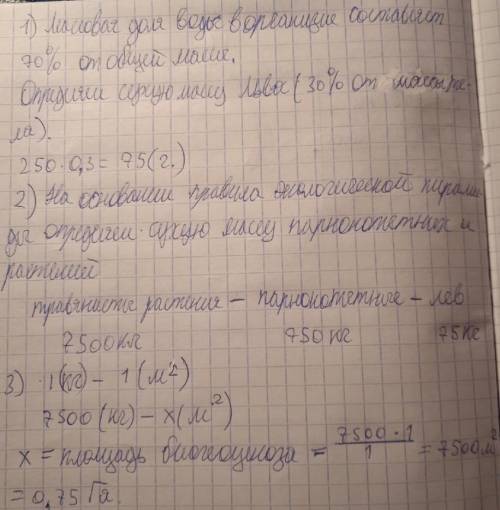 1) Массовая доля воды в организме составляет
70% от общей массы.
Определим сухую массу льва (30% от массы те-
ла).
250·0,3 = 75(г.)
2) На основании правила экологической пирами-
ды определим сухую массу парнокопытных и
растений
травянистые растения – парнокопытные – лев
7500кг 750 кг 75кг
3) 1(кг) – 1(м²)
7500(кг) – x(м²)
x = площадь биогеоценоза = 7500·1 / 1 = 7500м²
= 0,75 га.